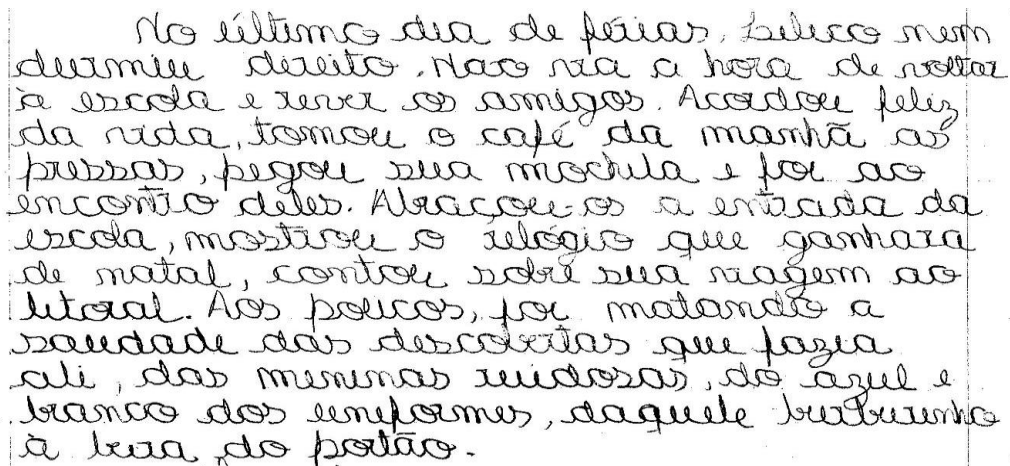 No último dia de férias, Lelico nem
durmiu direito. Não via a hora de voltar
à escola e rever os amigos. Acordou feliz
da vida, tomou o café da manhã às
pressas, pegou sua mochila e foi ao
encontro deles. Abraçou-os a entrada da
escola, mostrou o relógio que ganhara
de natal, contou sobre sua viagem ao
litoral. Aos poucos, foi matando a
saudade das descobertas que fazia
ali, das meninas ruidosas, do azul e
branco dos uniformes, daquele burburinho
à beira do portão.